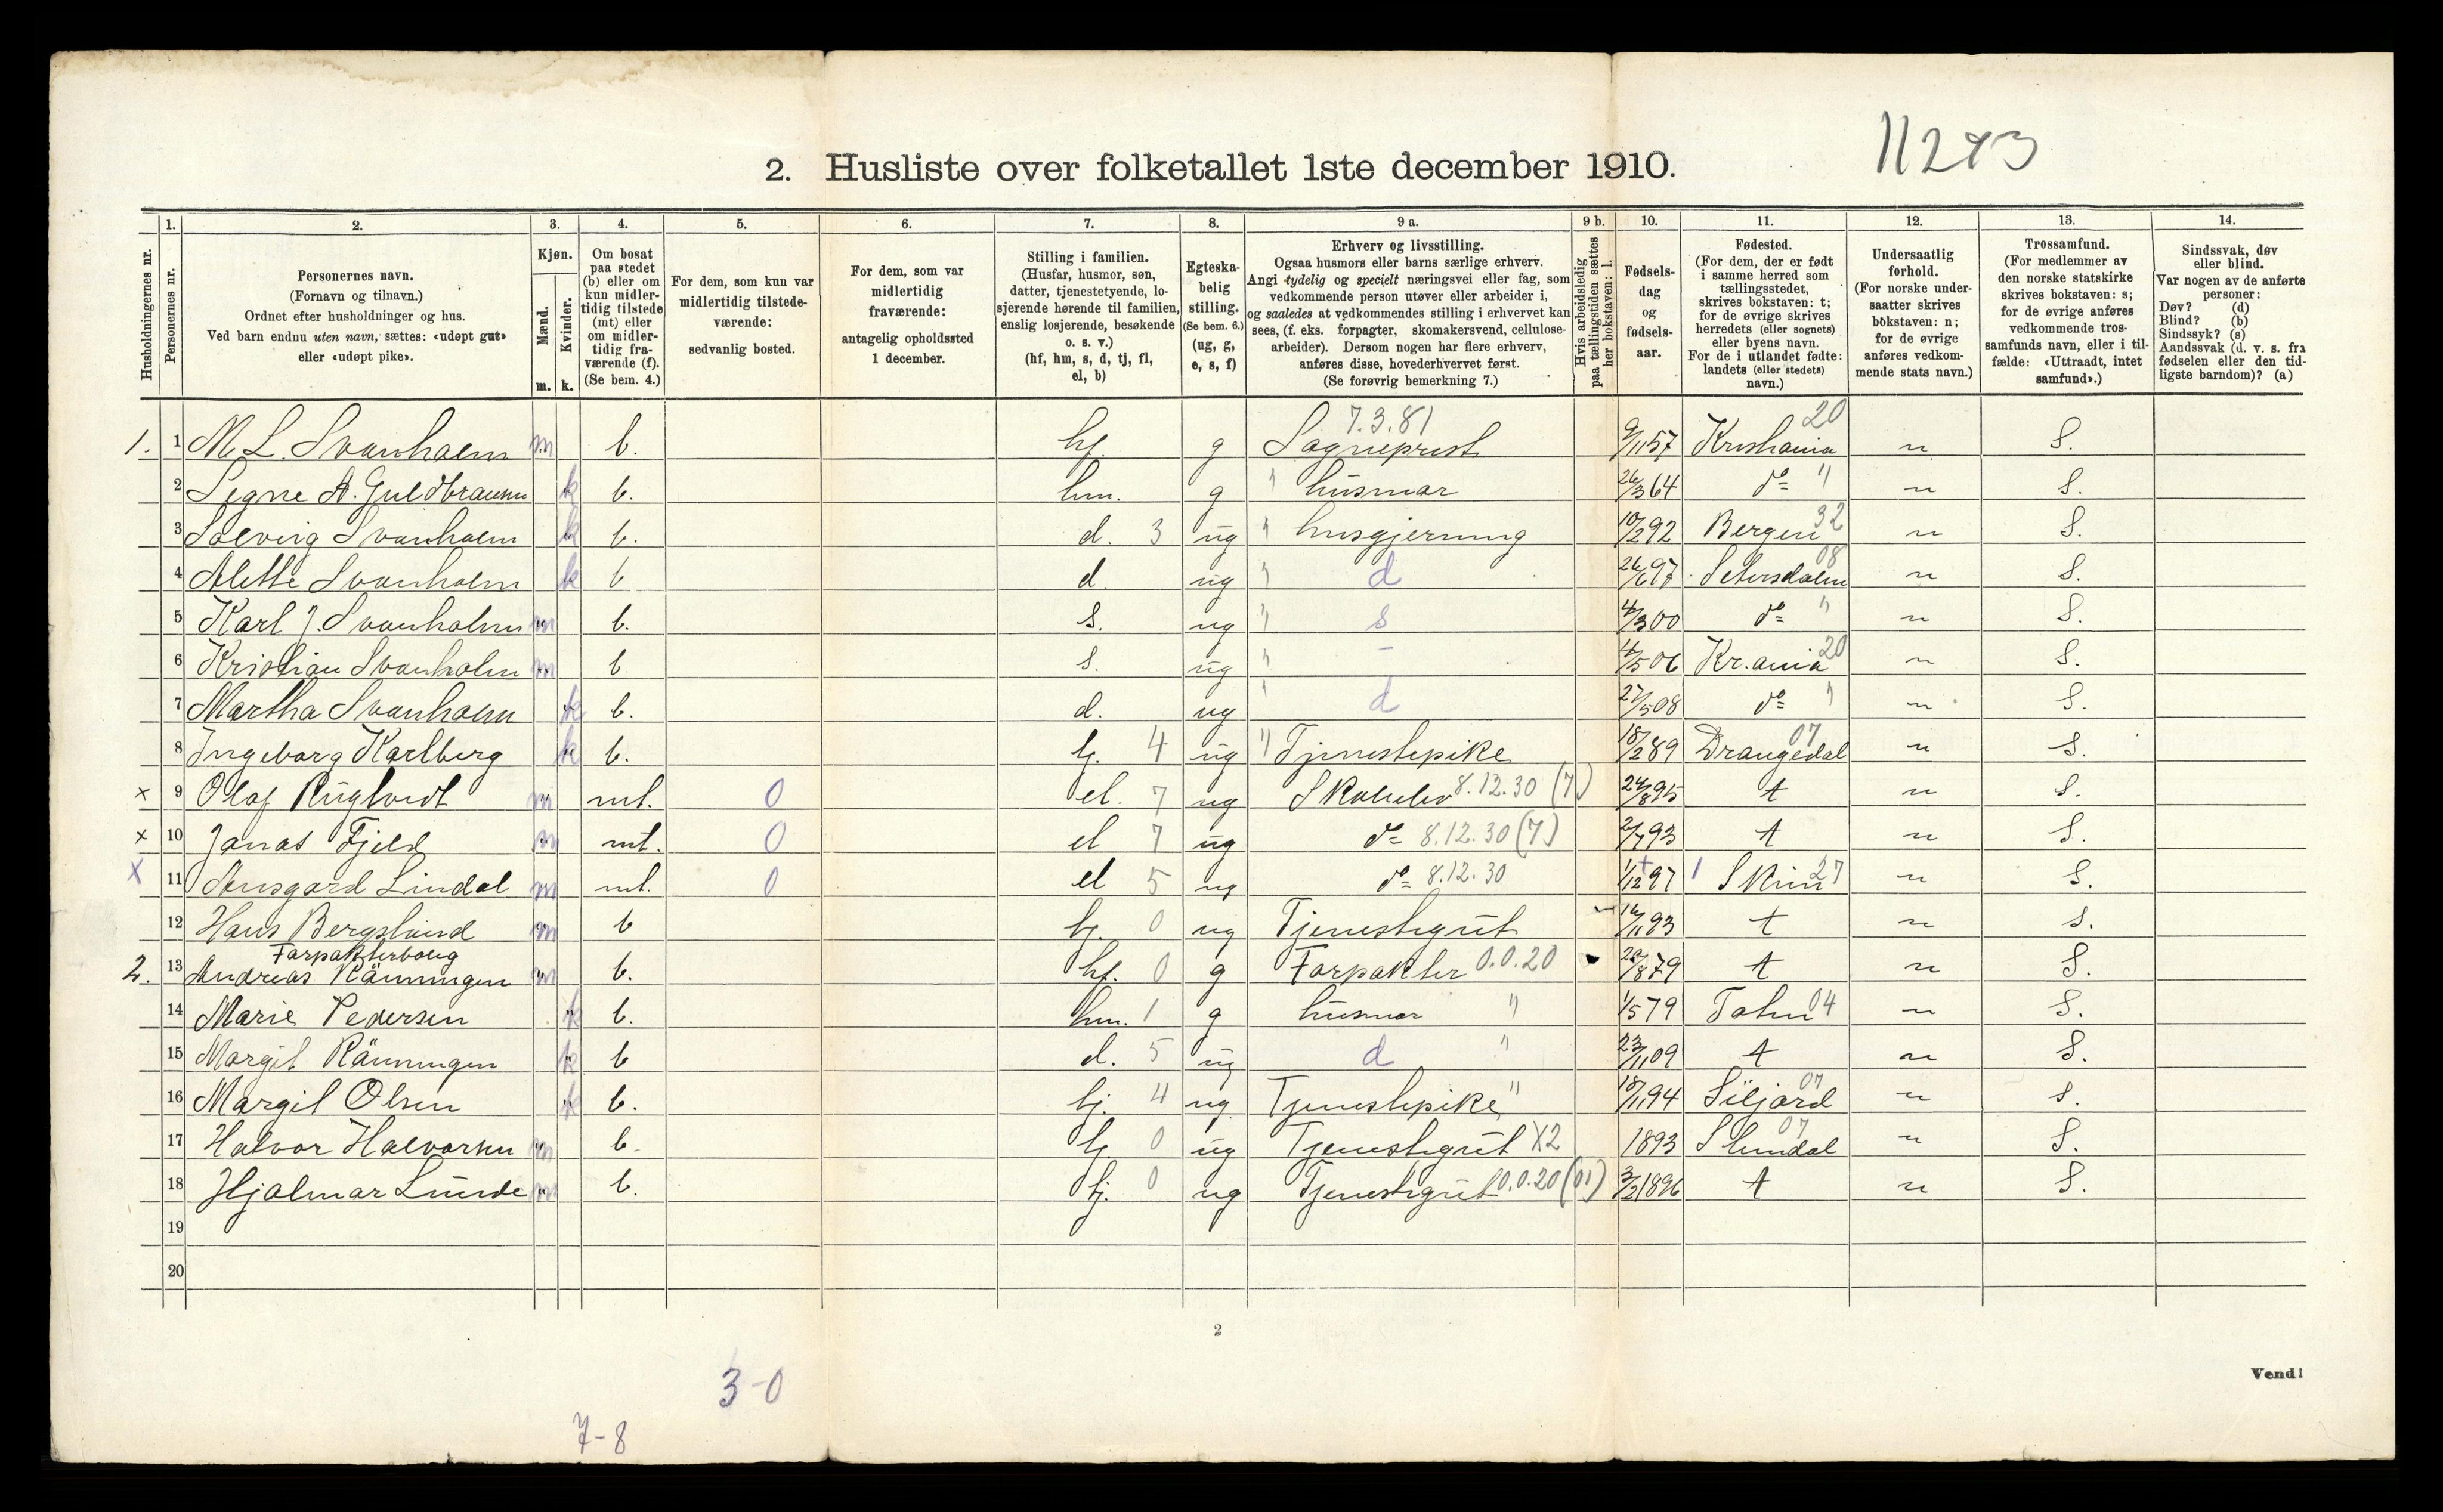 11273
2. Husliste over folketallet 1ste december 1910.
Husholdningernes nr.
1.
Personernes nr.
2.
Personernes navn.
(Fornavn og tilnavn.)
Ordnet efter husholdninger og hus.
Ved barn endnu uten navn, sættes: «udøpt gut»
eller «udøpt pike».
3.
Kjøn.
Mænd.
Kvinder.
m. k.
4.
Om bosat
paa stedet
(b) eller om
kun midler-
tidig tilstede
(mt) eller
om midler-
tidig fra-
værende (f).
(Se bem. 4.)
5.
For dem, som kun var
midlertidig tilstede-
værende:
sedvanlig bosted.
6.
For dem, som var
midlertidig
fraværende:
antagelig opholdssted
1 december.
7.
Stilling i familien.
(Husfar, husmor, søn,
datter, tjenestetyende, lo-
sjerende hørende til familien,
enslig losjerende, besøkende
o. s. v.)
(hf, hm, s, d, tj, fl,
el, b)
8.
Egteska-
belig
stilling.
(Se bem. 6.)
(ug, g,
e, s, f)
9 a.
Erhverv og livsstilling.
Ogsaa husmors eller barns særlige erhverv.
Angi tydelig og specielt næringsvei eller fag, som
vedkommende person utøver eller arbeider i,
og saaledes at vedkommendes stilling i erhvervet kan
sees, (f. eks. forpagter, skomakersvend, cellulose-
arbeider). Dersom nogen har flere erhverv,
anføres disse, hovederhvervet først.
(Se forøvrig bemerkning 7.)
9 b.
Hvis arbeidsledig
paa tællingstiden sættes
her bokstaven: l.
10.
Fødsels-
dag
og
fødsels-
aar.
11.
Fødested.
(For dem, der er født
i samme herred som
tællingsstedet,
skrives bokstaven: t;
for de øvrige skrives
herredets (eller sognets)
eller byens navn.
For de i utlandet fødte:
landets (eller stedets)
navn.)
12.
Undersaatlig
forhold.
(For norske under-
saatter skrives
bokstaven: n;
for de øvrige
anføres vedkom-
mende stats navn.)
13.
Trossamfund.
(For medlemmer av
den norske statskirke
skrives bokstaven: s;
for de øvrige anføres
vedkommende tros-
samfunds navn, eller i til-
fælde: «Uttraadt, intet
samfund».)
14.
Sindssvak, døv
eller blind.
Var nogen av de anførte
personer:
Døv? (d)
Blind? (b)
Sindssyk? (s)
Aandssvak (d. v. s. fra
fødselen eller den tid-
ligste barndom)? (a)
7.3.81 20
1. 1 M. L. Svanholm m b. hf. g Sogneprest 9/11 57 Kristiania n S.
2 Signe A. Guldbransen k b. hm. g " husmor 26/3 64 do " n S.
3 Solveig Svanholm k b. d. 3 ug " husgjerning 10/2 92 Bergen 32 n S.
4 Alette Svanholm k b d. ug " d 26/6 97 Setersdalen 08 n S.
5 Karl J. Svanholm m b. s. ug " s 4/3 00 do " n S.
6 Kristian Svanholm m b. s. ug " - 4/5 06 Kr.ania 20 n S.
7 Martha Svanholm k b. d. ug " d 27/5 08 do " n S.
8 Ingeborg Karlberg k b. tj. 4 ug " Tjenestepike 18/2 89 Drangedal 07 n S.
x 9 Olaf m mt. 0 el. 7 ug Skoleelev 8.12.30 (7) 24/8 95 t n S.
x 10 Jonas Fjeld m mt. 0 el 7 ug do 8.12.30 (7) 2/7 93 t n S.
x 11 Ansgard Lindal m mt. 0 el 5 ug do 8.12.30 1/12 97 Skien 27 n S.
12 Hans Bergsland m b tj. 0 ug Tjenestegut 16/11 93 t n S.
Forpakterbolig
2. 13 Andreas Rönningen m b. hf. 0 g Forpakter 0.0.20 28/8 79 t n S.
14 Marie Pedersen k b. hm. 1 g husmor " 1/5 79 Toten 04 n S.
15 Margit Rönningen k b d. 5 ug d " 23/11 09 t n S.
16 Margit Olsen k b. tj. 4 ug Tjenestepike " 18/11 94 Siljord 07 n S.
17 Halvor Halvorsen m b. tj. 0 ug Tjenestegut X2 1893 Slemdal 07 n S.
18 Hjalmar Lunde m b. tj. 0 ug Tjenestegut 0.0.20 (01) 3/2 1896 t n S.
19
20
2
Vend!
3-0
7-8